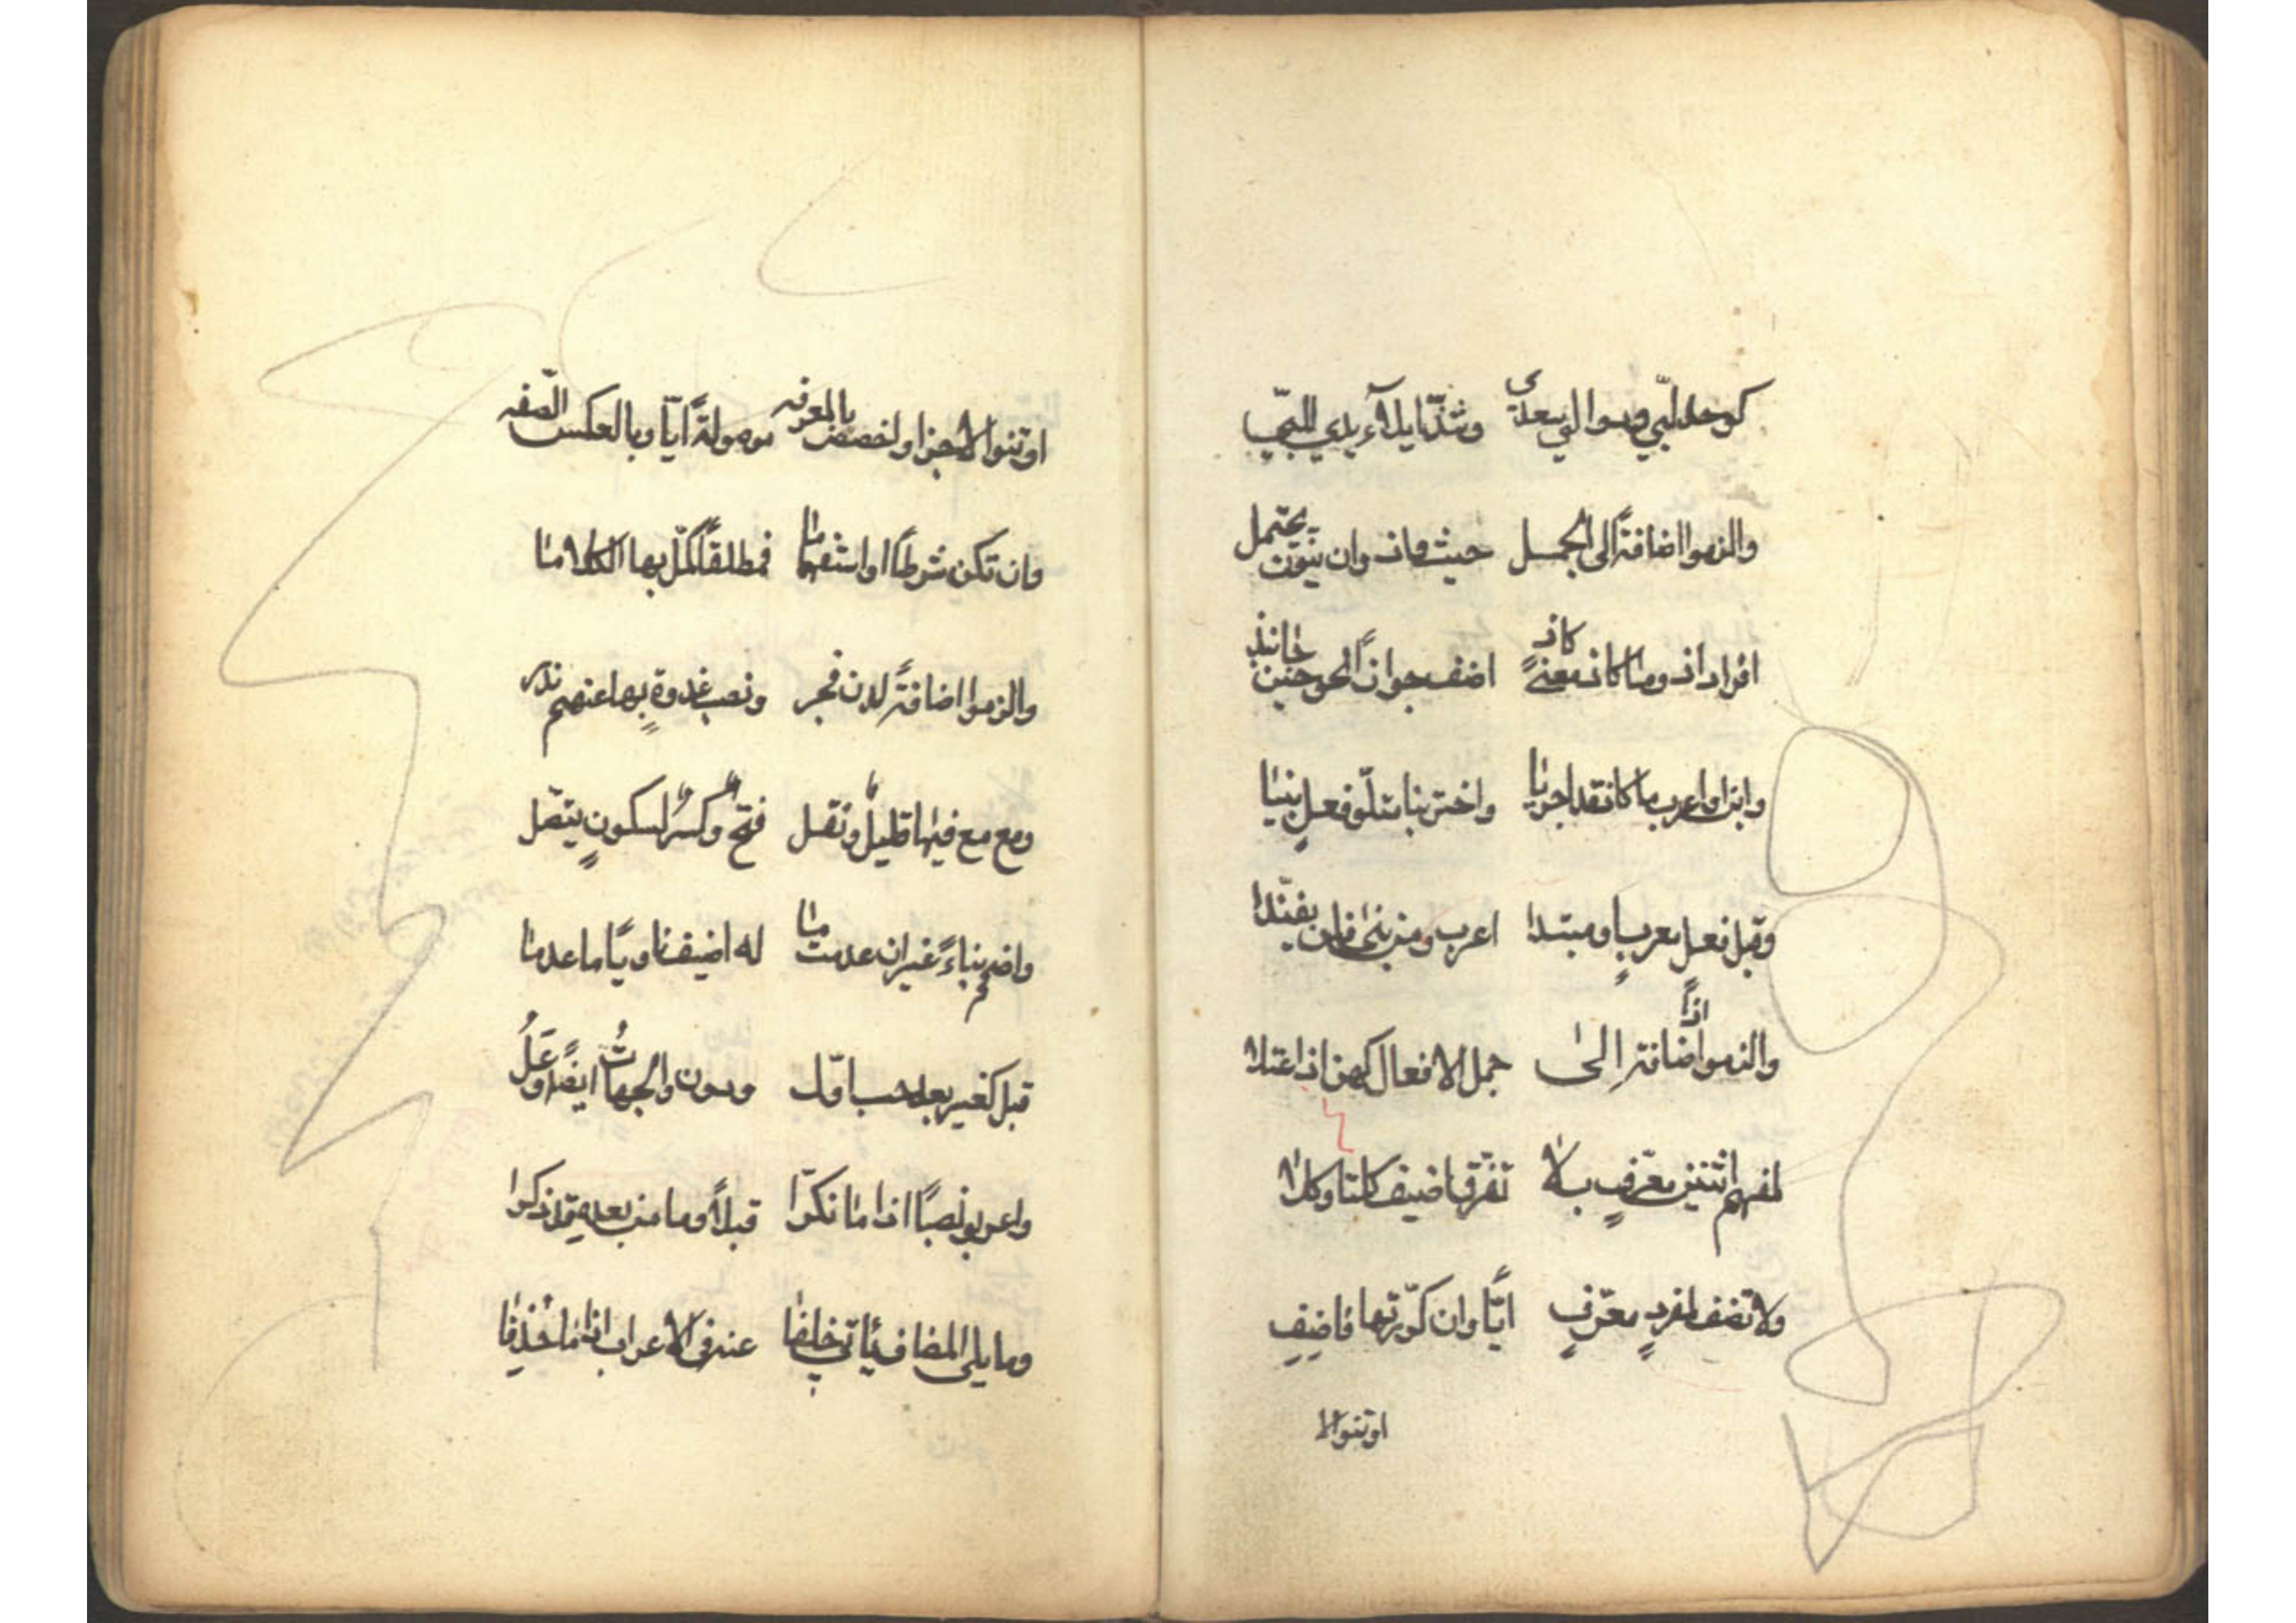 كوحد لبّي ودوالي سعدي وشذّ ايلآء يدي للبّي
والزموا اضافةً الى الجمل حيث واذ وان ينوّن يحتمل
افراد اذ وما كاذ معنىً كاذ اضف جوازاً نحو حين جانبذ
وابن او اعرب ما كاذ قد اجريا واختر بنا متلوّ فعلٍ بنيا
وقبل فعل معربٍ او مبتدا اعرب ومن بنى فلن يفنّدا
والزموا اذاً اضافة الى جمل الافعال كهن اذا اعتلا
لمفهم اثنين معرّفٍ بلا تفرّق اضيف كلتا وكلا
ولا تضف لمفردٍ معرّفٍ ايّاً وان كرّرتها فاضيف
او تنوالا
او تنوالاجزا واخصصن بالمعرفه موصولةً ايّا وبالعكس الصّفه
وان تكن شرطاً او استفهاما فمطلقاً كمّل بها الكلاما
والزموا اضافةً لدن فجر ونصب غدوةٍ بها عنهم ندر
ومع مع فيها قليلٌ ونقل فتحٌ وكسرٌ لسكونٍ يتّصل
واضمم بناءً غيراً ان عدمت ما له اضيف ناوياً ما عدما
قبل كغير بعد حسب اوّل ودون والجهاتُ ايضاً وعَلُ
واعربوا نصباً اذا ما نكّرا قبلاً وما من بعده قد ذكرا
وما يلي المضاف يأتي خلفا عنه في الاعراب اذا ما حُذفا